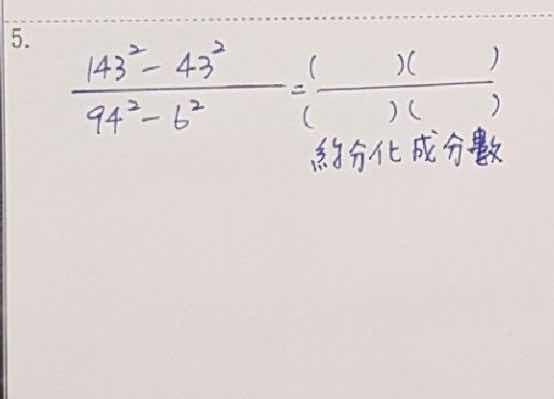 5.
143² - 43² = (    )(    )
94² - 6² (    )(    )
約分化成分數